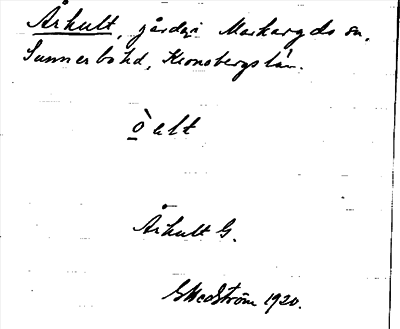 Århult, gårdar i Markaryds sn,
Sunnerbo hd, Kronobergs län.
òelt
Århult G.
G Hedström 1920.